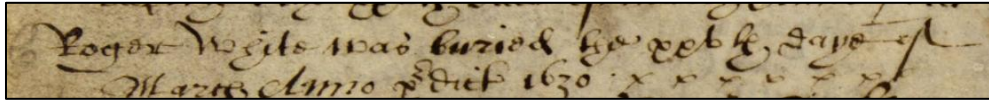 Roger Wyite was buried the xxvth daye of
March Anno p̄dict 1630 x x x x x x